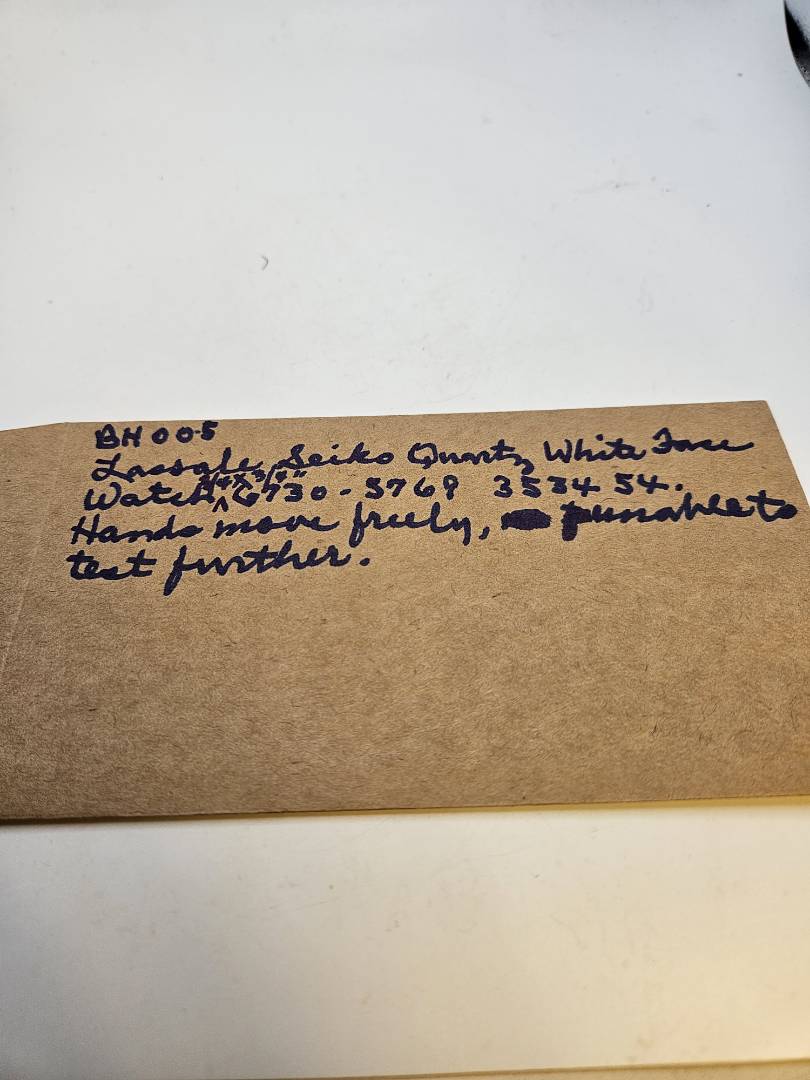 BH 005
Lassale, Seiko Quartz White Face
Watch 6730-5769 353454.
Hands move freely, unable to
test further.